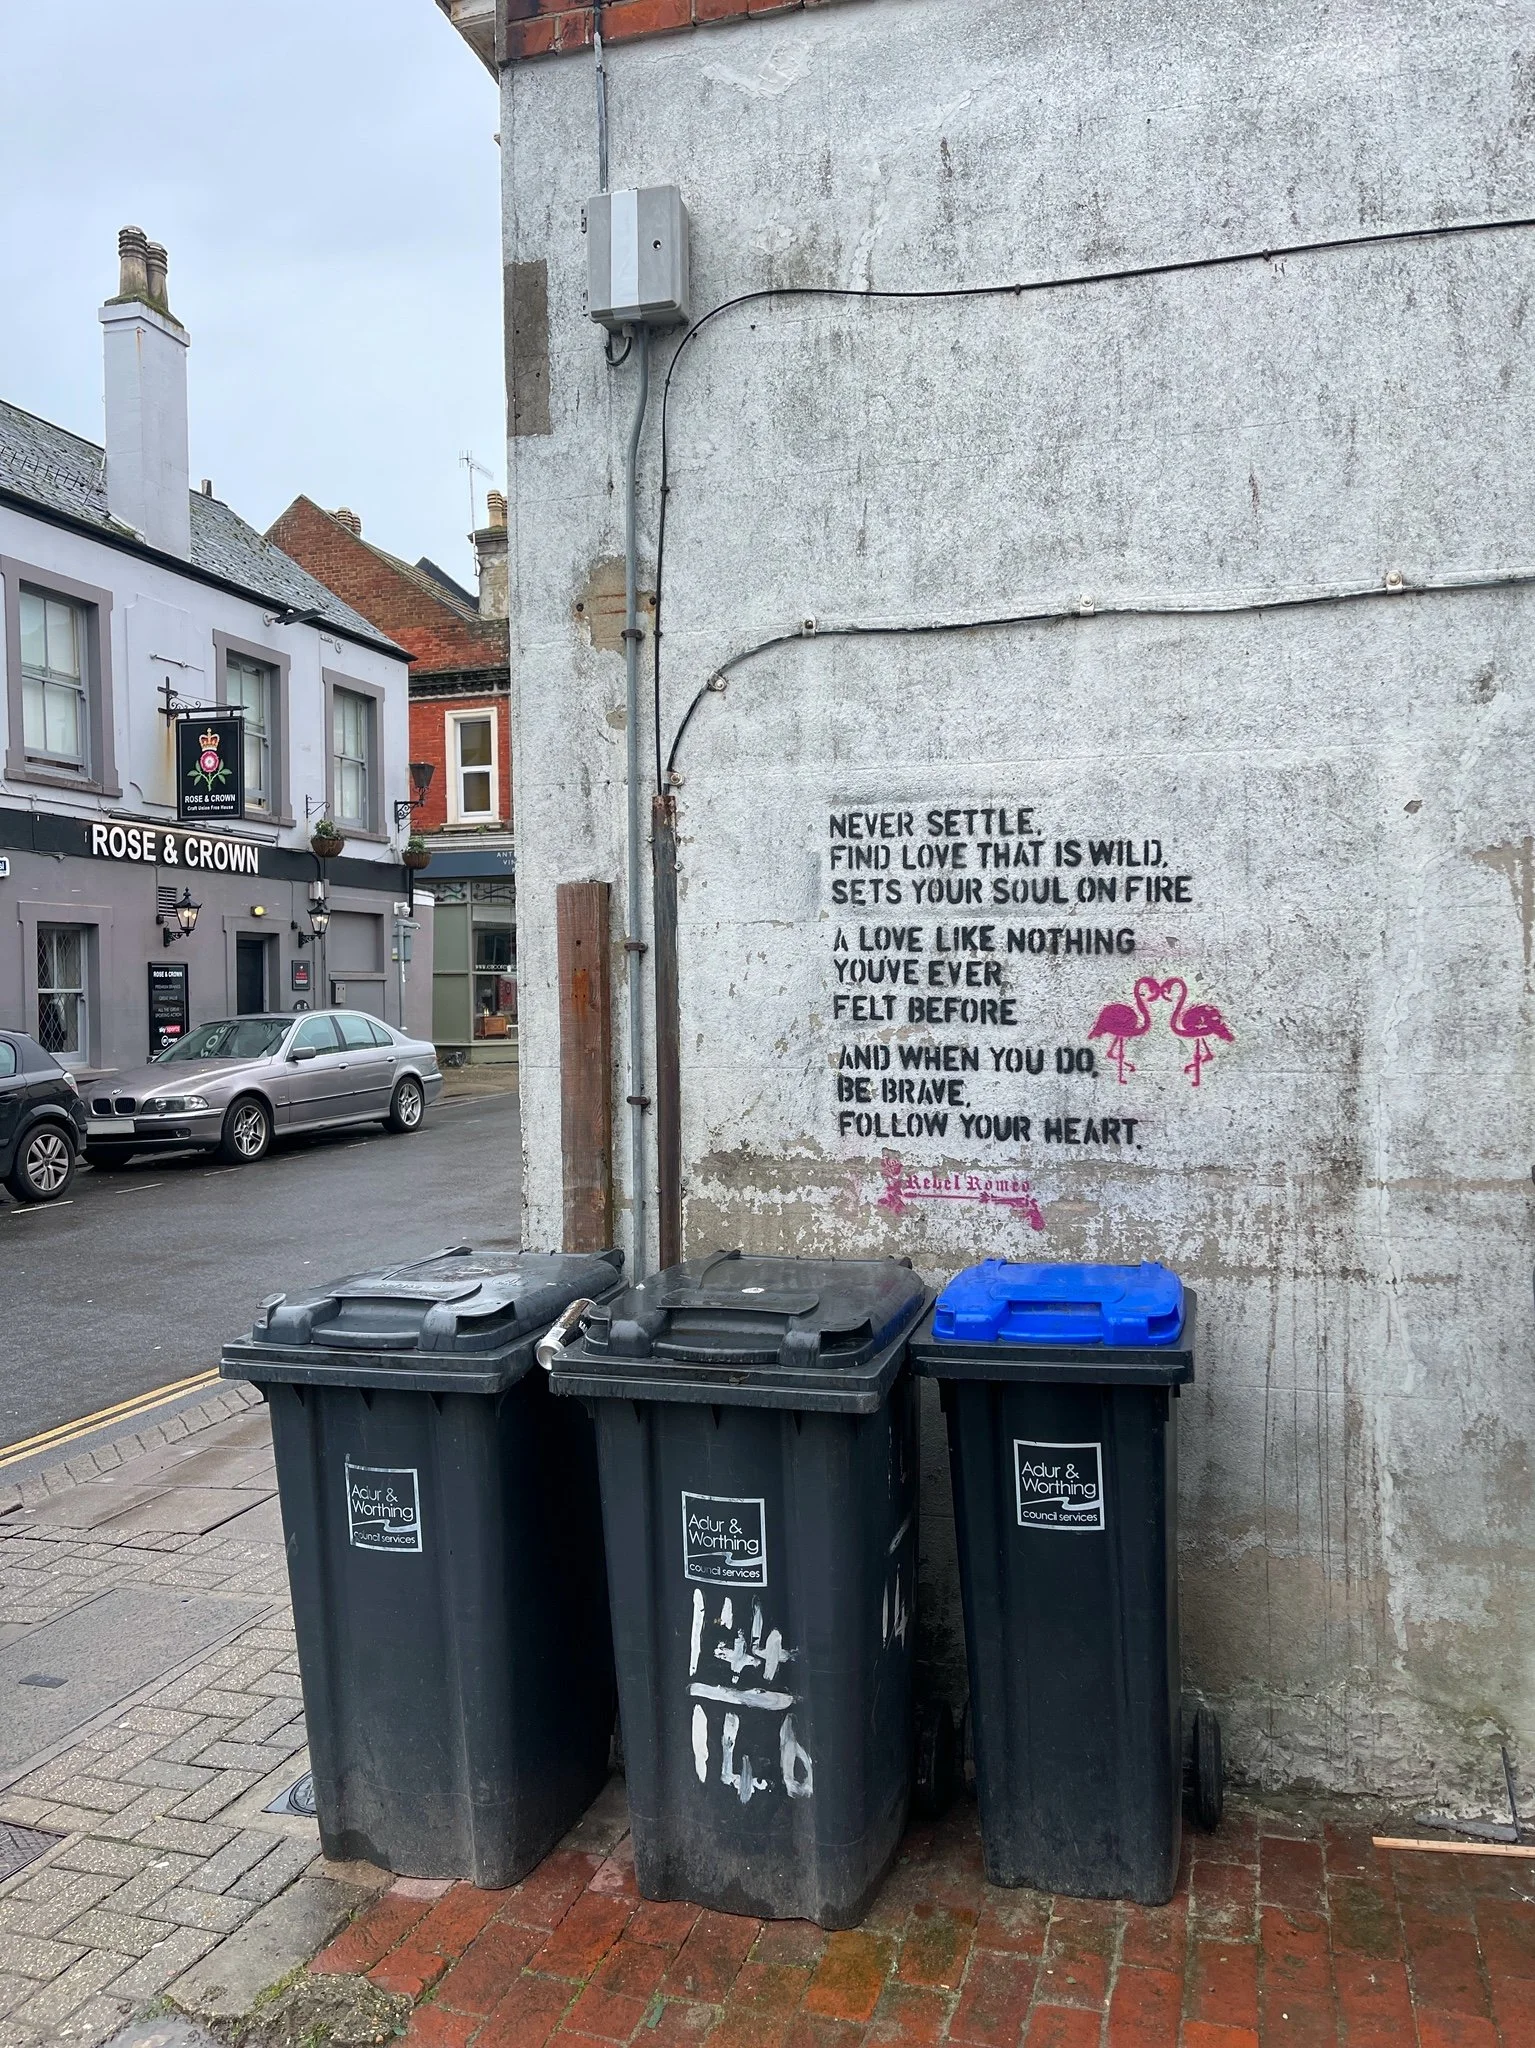 ROSE & CROWN
Craft Union Free House
ROSE & CROWN
ROSE & CROWN
sky sports
NEVER SETTLE.
FIND LOVE THAT IS WILD,
SETS YOUR SOUL ON FIRE
A LOVE LIKE NOTHING
YOU'VE EVER
FELT BEFORE
AND WHEN YOU DO,
BE BRAVE.
FOLLOW YOUR HEART.
Rebel Romeo
Adur &
Worthing
council services
Adur &
Worthing
council services
144
146
14
Adur &
Worthing
council services